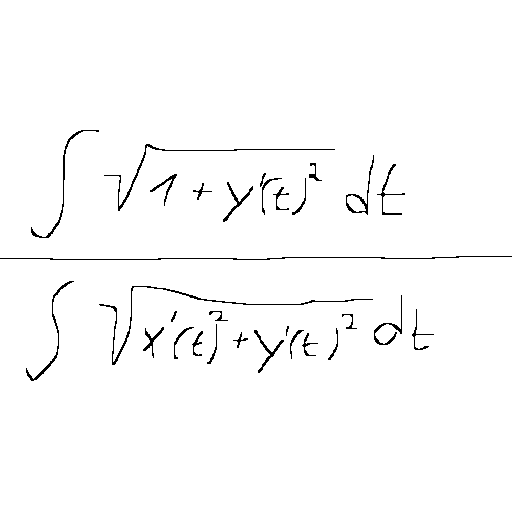 ∫ √(1 + y'(t)²) dt
∫ √(x'(t)² + y'(t)²) dt